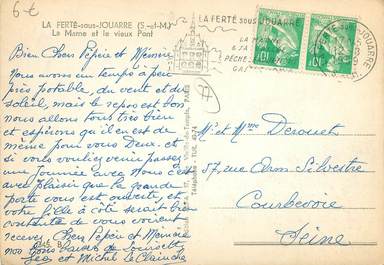 6-€
LA FERTÉ-sous-JOUARRE (S.-et-M.)
Le Morne et le vieux Pont
LA FERTÉ SOUS JOUARRE
LA MARNE
PÊCHE
Bien Chers Pépère et Mémère
Nous avons un temps à peu
près potable, du vent et du
soleil, mais le repos est bon
nous allons tous très bien
et espérons qu'il en est de
même pour vous Deux. et si
vous vouliez venir passer
une journée avec Nous c'est
avec plaisir que la grande
porte vous est ouverte, et
votre fille à côté serait bien
contente de vous voir
recevez Chers Pépère et Mémère
nos bons baisers de
et Michel
Mr et Mme Derouet
57, rue Arm. Silvestre
Courbevoie
Seine